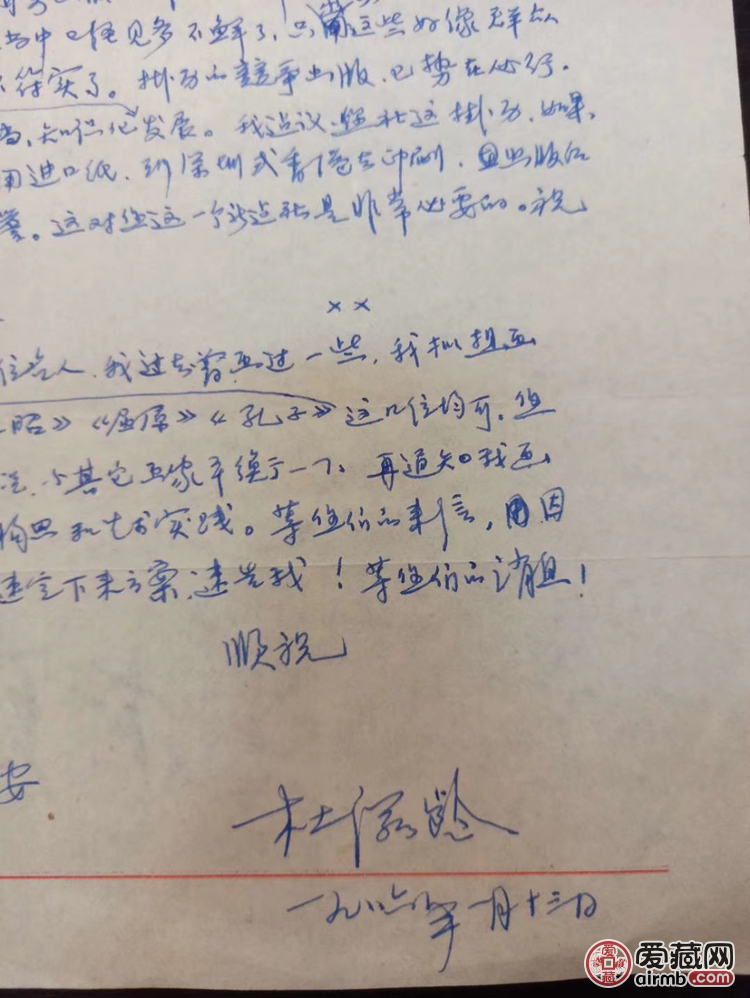 书中已经见多不鲜了，只有这些好像群众
不符实了。挂历的竞争出版，已势在必行。
知识化发展。我建议 社这挂历，如果，
用进口纸，到深圳或香港去印刷，且出版的
誉。这对您这一个新建社是非常必要的。祝
××
位名人，我过去曾画过一些，我拟想画
昭》《屈原》《孔子》这几位均可。但
与其它画家平衡一下、再通知我画
构思和艺术实践。等您们的来信，因
速定下来方案，速告我！等您们的消息！
顺祝
安
杜滋龄
一九八六年一月十三日
爱藏网
airmb.com